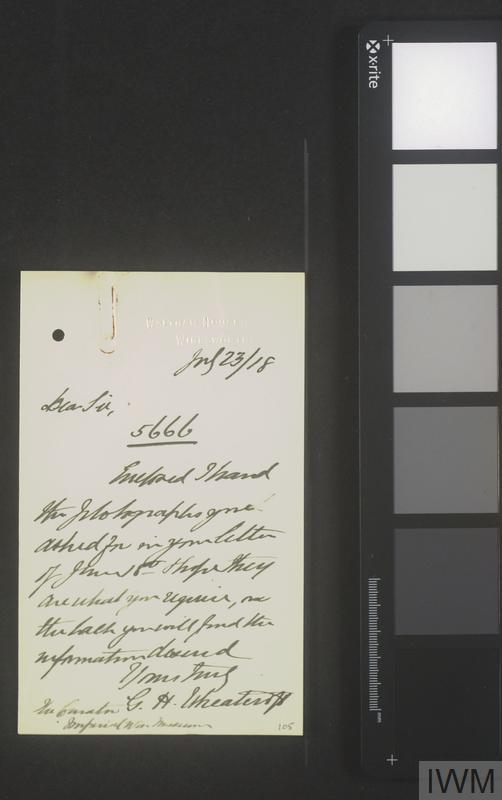 July 23/18
Dear Sir,
5666
Enclosed I hand
the photographs you
asked for in your letter
of June 18th I hope they
are what you require, on
the back you will find the
information desired
Yours truly
G. H.
The Curator
Imperial War Museum
105
x-rite
IWM